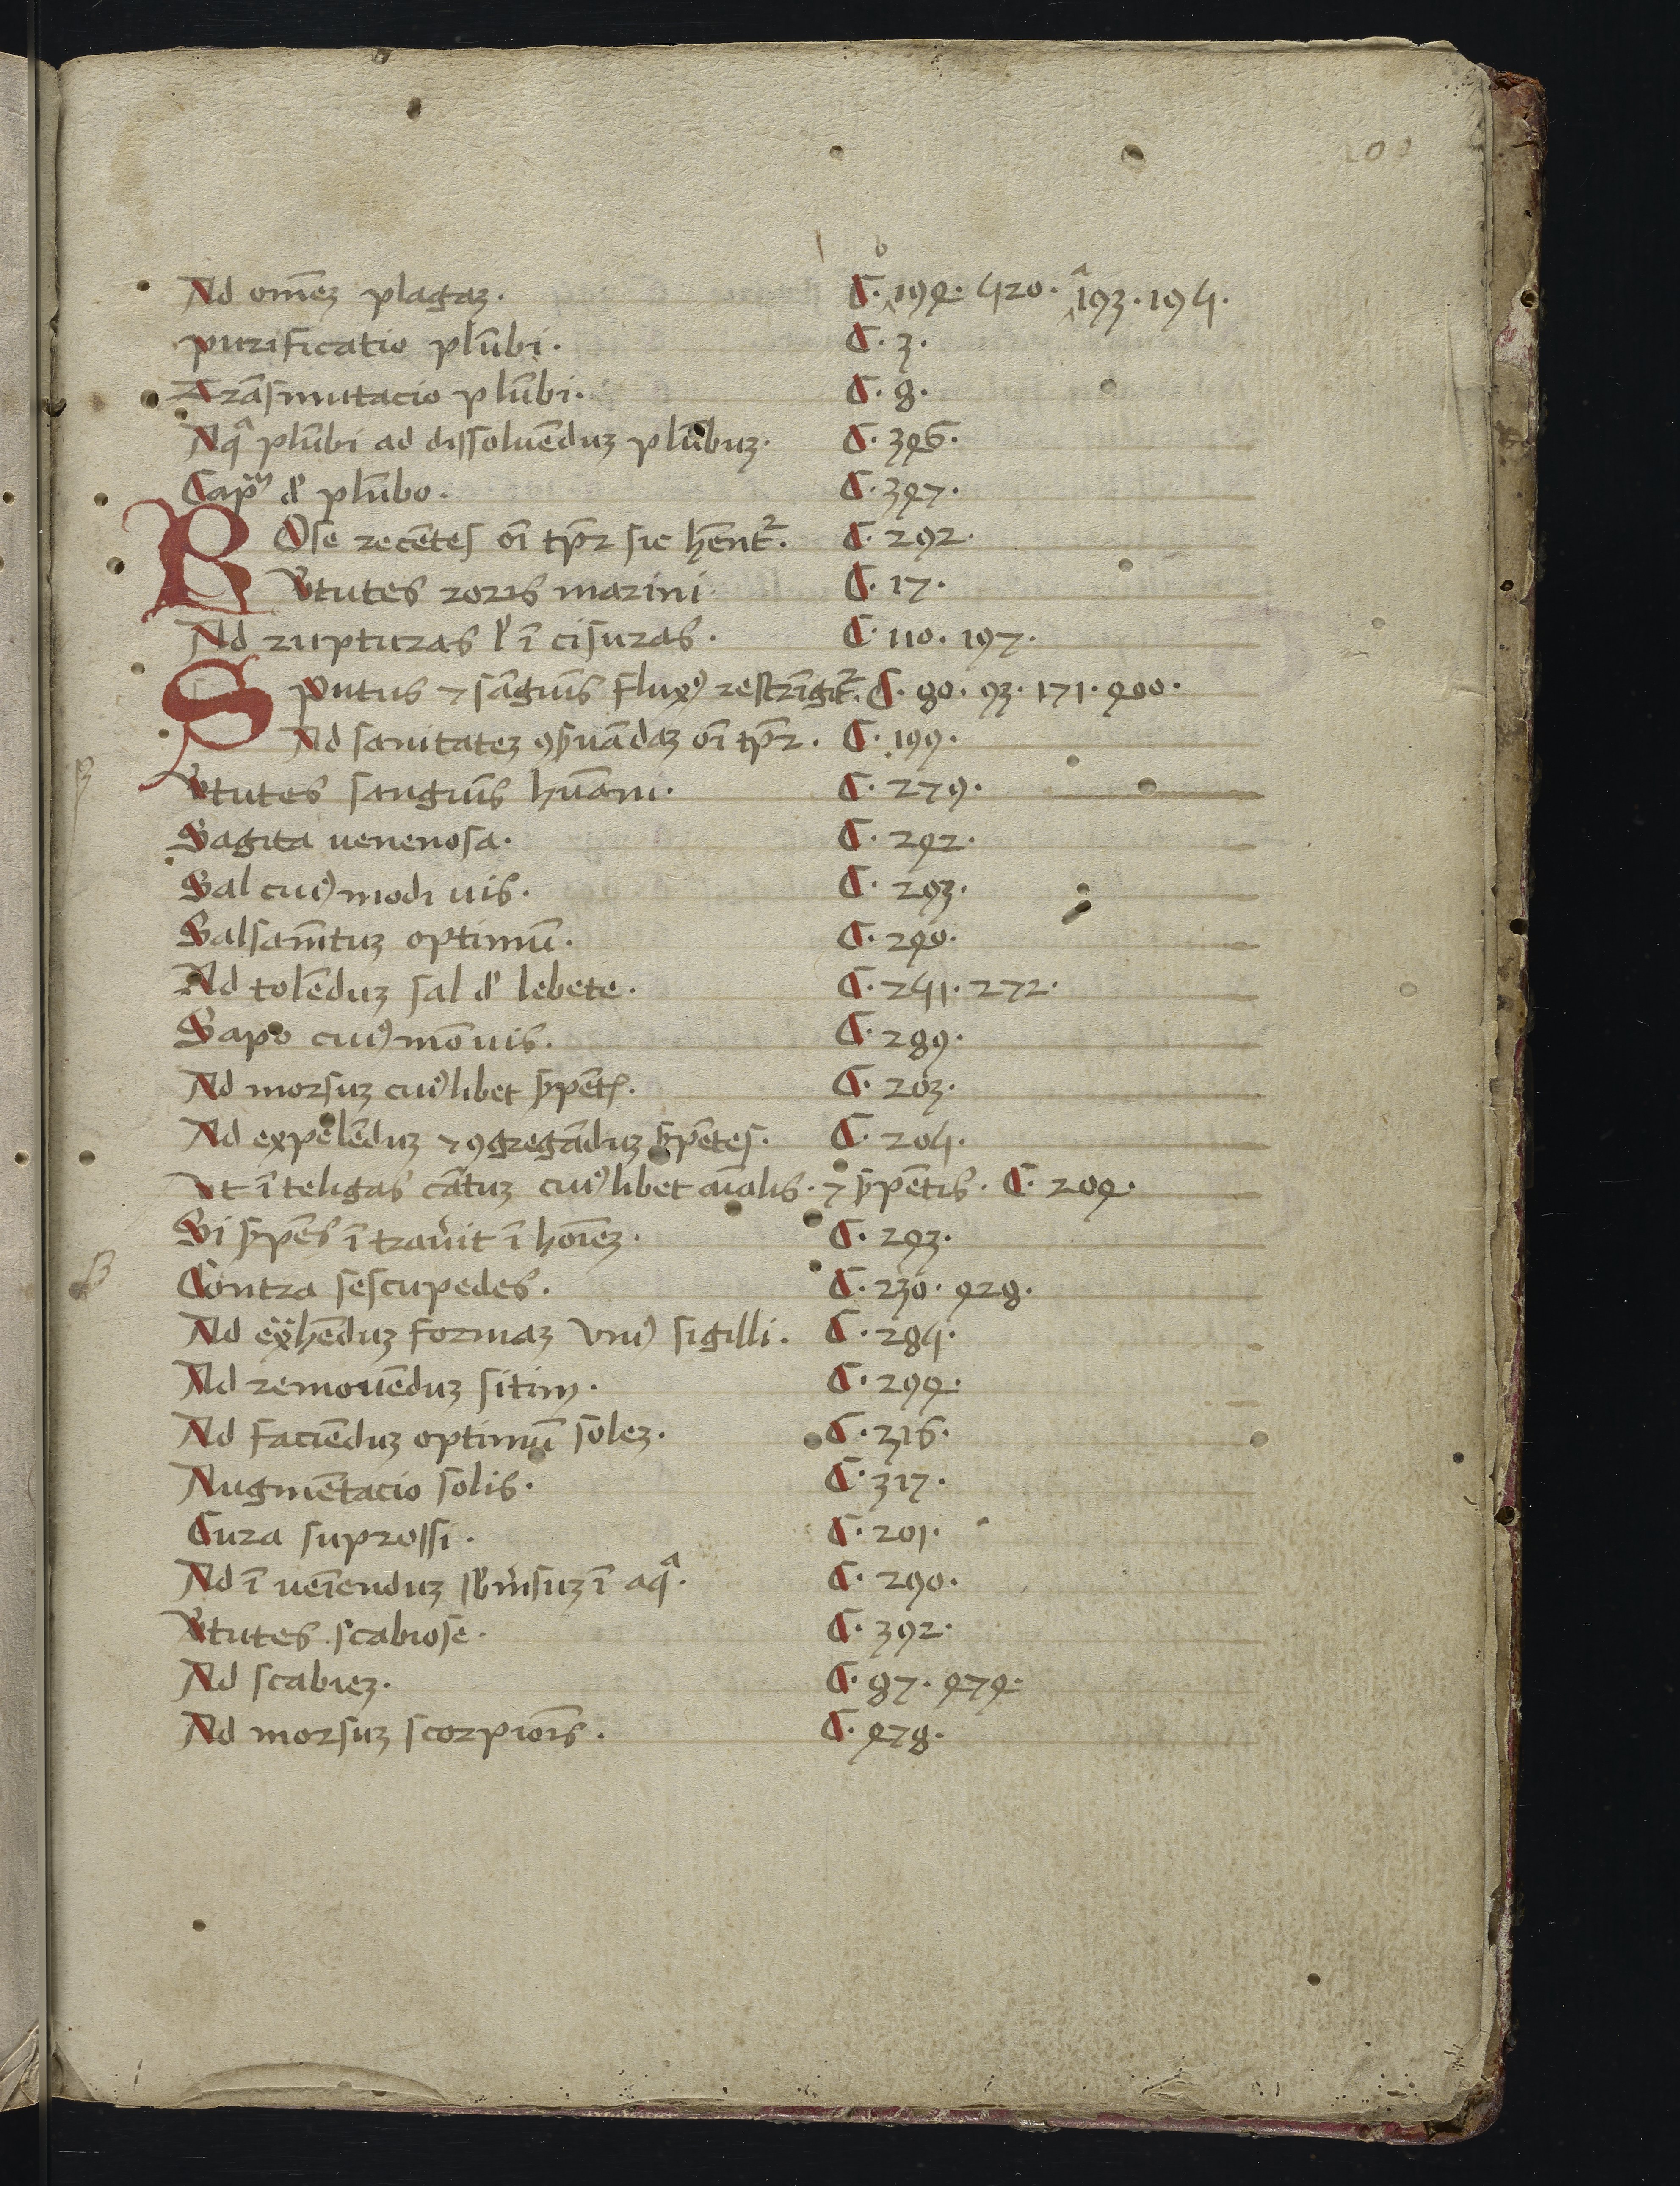 b
Ad om̄eꝫ plagaꝫ. C. 195. 420. a 193. 194.
purificatio plūbi. C. 3.
Trāsmutacio plūbi. C. 8.
Aqᵃ plūbi ad dissoluēduꝫ plūbuꝫ. C. 356.
Capᵐ d' plūbo. C. 357.
ROse recētes oī tp̄r sic hēntᷣ. C. 292.
V̓tutes roris marini. C. 17.
Ad rupturas ł ī cisuras. C. 110. 197.
Sputus ⁊ sāguīs fluxꝰ restrīgitᷣ. C. 80. 93. 171. 500.
Ad sanitateꝫ ꝯẜuādaꝫ oī tp̄r. C. 199.
V̓tutes sanguīs hūani. C. 279.
Sagita uenenosa. C. 252.
Sal cuiꝰmodi uis. C. 293.
Salsam̄tuꝫ optimū. C. 250.
Ad tolēduꝫ sal d' lebete. C. 241. 272.
Sapo cuiꝰmōuis. C. 289.
Ad morsuꝫ cuiꝰlibet ẜpētꝭ. C. 203.
Ad expelēduꝫ ⁊ ꝯgregāduꝫ ẜpētes. C. 204.
Vt īteligas cātuꝫ cuiꝰlibet aīalis. ⁊ ẜpētis. C. 205.
Si ẜpēs ītrau̓it ī hoīeꝫ. C. 253.
Contra sescupedes. C. 230. 528.
Ad ex̄hēduꝫ formaꝫ vniꝰ sigilli. C. 284.
Ad remouēduꝫ sitim. C. 295.
Ad faciēduꝫ optimū soleꝫ. C. 316.
Augmētacio solis. C. 317.
Cura suprossi. C. 201.
Ad īueīenduꝫ sb̓m̓suꝫ ī aqᵃ. C. 290.
V̓tutes scabiose. C. 392.
Ad scabieꝫ. C. 87. 575.
Ad morsuꝫ scorpioīs. C. 578.